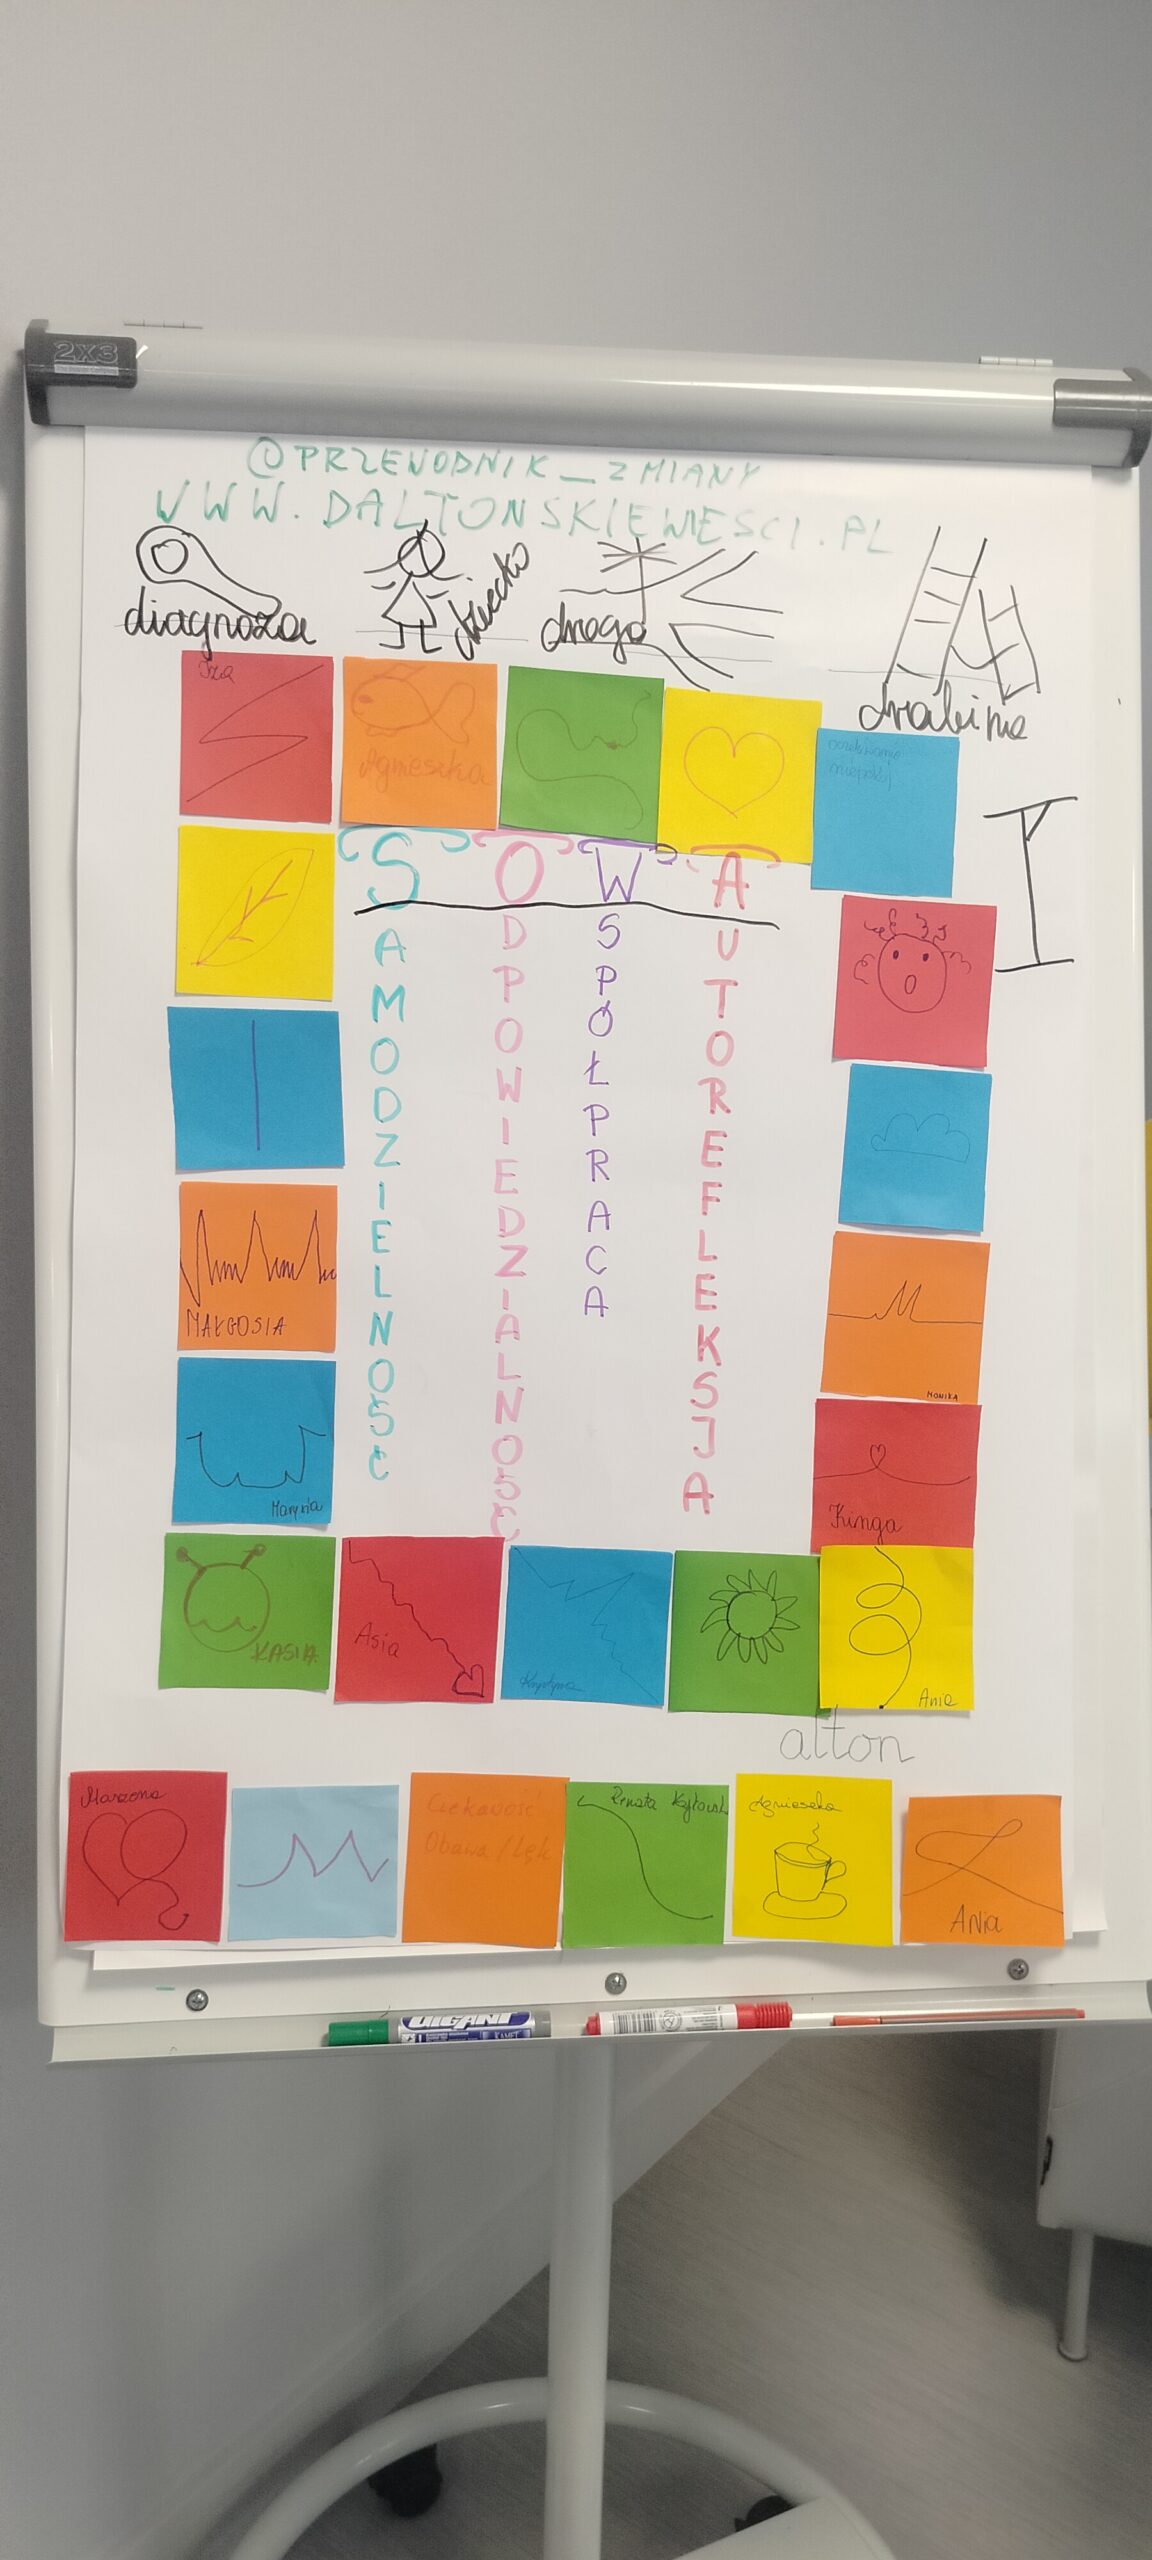 2X3
@PRZEWODNIK_ZMIANY
WWW.DALTONSKIEWIESCI.PL
diagnoza
dziecko
droga
drabina
Iza
Agnieszka
oczekiwanie
niepokój
SAMODZIELNOŚĆ
ODPOWIEDZIALNOŚĆ
WSPÓŁPRACA
AUTOREFLEKSJA
MAŁGOSIA
MONIKA
Marysia
Kinga
KASIA
Asia
Krystyna
Ania
alton
Marzena
Ciekawość
Obawa/Lęk
Renata
Agnieszka
Ania
GIGANT
KAMET